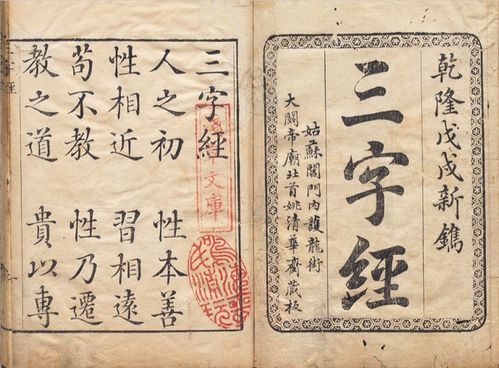 乾隆戊戌新鐫
三字經
姑蘇閶門內護龍街
大關帝廟北首姚清華齋蔵板
三字經
人之初　性本善
性相近　習相遠
苟不教　性乃遷
教之道　貴以專
文庫